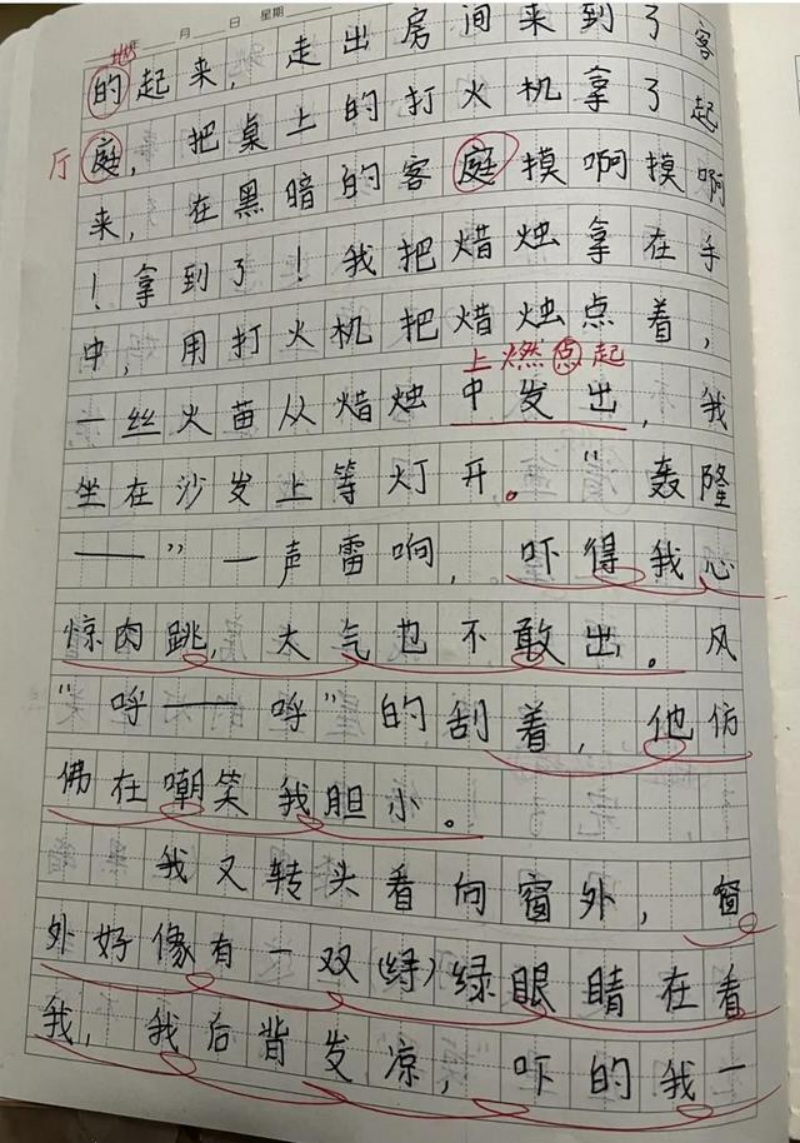 年 月 日 星期
地
的起来，走出房间来到了客
厅
庭，把桌上的打火机拿了起
来，在黑暗的客庭摸啊摸啊
！拿到了！我把蜡烛拿在手
中，用打火机把蜡烛点着，
上燃点起
一丝火苗从蜡烛中发出，我
坐在沙发上等灯开。“轰隆
——”一声雷响，吓得我心
惊肉跳，大气也不敢出。风
“呼——呼”的刮着，他仿
佛在嘲笑我胆小。
我又转头看向窗外，窗
外好像有一双(绿)绿眼睛在看
我，我后背发凉，吓的我一